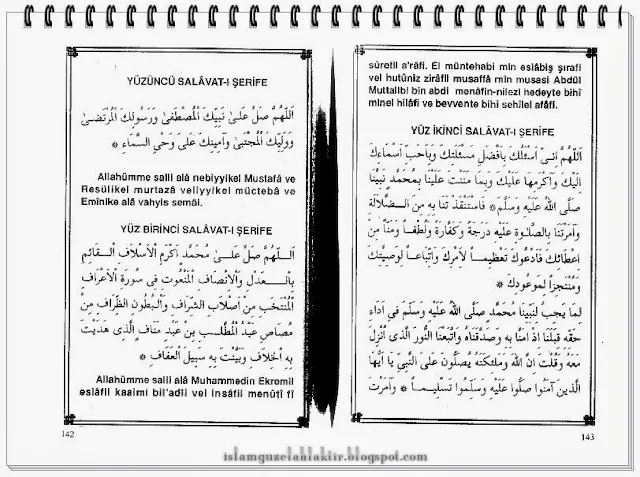 YÜZÜNCÜ SALÂVAT-I ŞERİFE
اَللّٰهُمَّ صَلِّ عَلٰى نَبِيِّكَ الْمُصْطَفٰى وَرَسُولِكَ الْمُرْتَضٰى
وَوَلِيِّكَ الْمُجْتَبٰى وَاَمِينِكَ عَلٰى وَحْىِ السَّمَاءِ *
Allahümme salli alâ nebiyyikel Mustafâ ve
Resülikel murtazâ veliyyikel müctebâ ve
Emînike alâ vahyis semâi.
YÜZ BİRİNCİ SALÂVAT-I ŞERİFE
اَللّٰهُمَّ صَلِّ عَلٰى مُحَمَّدٍ اَكْرَمِ الْاَسْلَافِ الْقَائِمِ
بِالْعَدْلِ وَالْاِنْصَافِ الْمَنْعُوتِ فِى سُورَةِ الْاَعْرَافِ
الْمُنْتَخَبِ مِنْ اَصْلَابِ الشِّرَافِ وَالْبُطُونِ الظِّرَافِ مِنْ
مُصَاصِ عَبْدِ الْمُطَّلِبِ بْنِ عَبْدِ مَنَافٍ الَّذِى هَدَيْتَ
بِهِ الْخِلَافَ وَبَيَّنْتَ بِهِ سَبِيلَ الْعَفَافِ *
Allahümme salli alâ Muhammedin Ekremil
eslâfil kaaimi bil'adli vel insâfil menûti fî
142
sûretil a'râfi. El müntehabi min eslâbiş şırafi
vel hutûniz zirâfil musaffâ min musasi Abdül
Muttalibi bin abdi menâfin-nilezi hedeyte bihî
minel hilâfi ve beyvente bihî sehîlel afâfi.
YÜZ İKİNCİ SALÂVAT-I ŞERİFE
اَللّٰهُمَّ اِنِّى اَسْئَلُكَ بِاَفْضَلِ مَسْئَلَتِكَ وَبِاَحَبِّ اَسْمَائِكَ
اِلَيْكَ وَاَكْرَمِهَا عَلَيْكَ وَبِمَا مَنَنْتَ عَلَيْنَا بِمُحَمَّدٍ نَبِيِّنَا
صَلَّى اللّٰهُ عَلَيْهِ وَسَلَّمَ * فَاسْتَنْقَذْتَنَا بِهِ مِنَ الضَّلَالَةِ
وَاَمَرْتَنَا بِالصَّلٰوةِ عَلَيْهِ دَرَجَةً وَكَفَّارَةً وَلُطْفًا وَمَنًّا مِنْ
اِعْطَائِكَ فَاَدْعُوكَ تَعْظِيمًا لِاَمْرِكَ وَاتِّبَاعًا لِوَصِيَّتِكَ
وَمُنْتَجِزًا لِمَوْعُودِكَ *
لِمَا يَجِبُ لِنَبِيِّنَا مُحَمَّدٍ صَلَّى اللّٰهُ عَلَيْهِ وَسَلَّمَ فِى اَدَاءِ
حَقِّهِ قِبَلَنَا اِذْ اٰمَنَّا بِهِ وَصَدَّقْنَاهُ وَاتَّبَعْنَا النُّورَ الَّذِى اُنْزِلَ
مَعَهُ وَقُلْتَ اِنَّ اللّٰهَ وَمَلٰئِكَتَهُ يُصَلُّونَ عَلَى النَّبِىِّ يَا اَيُّهَا
الَّذِينَ اٰمَنُوا صَلُّوا عَلَيْهِ وَسَلِّمُوا تَسْلِيمًا * وَاَمَرْتَ
143
islamguzelahlaktir.blogspot.com